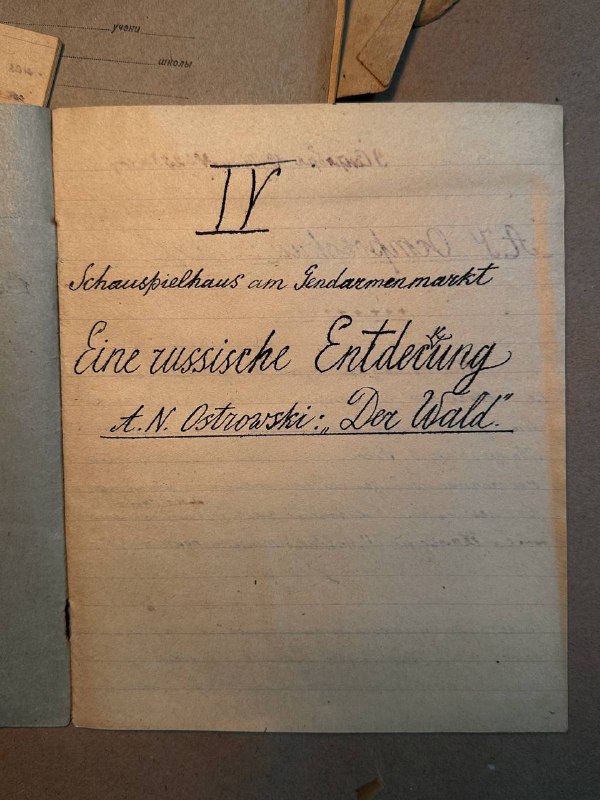 учени
школы
IV
Schauspielhaus am Gendarmenmarkt
Eine russische Entdeckung
A. N. Ostrowski: „Der Wald."